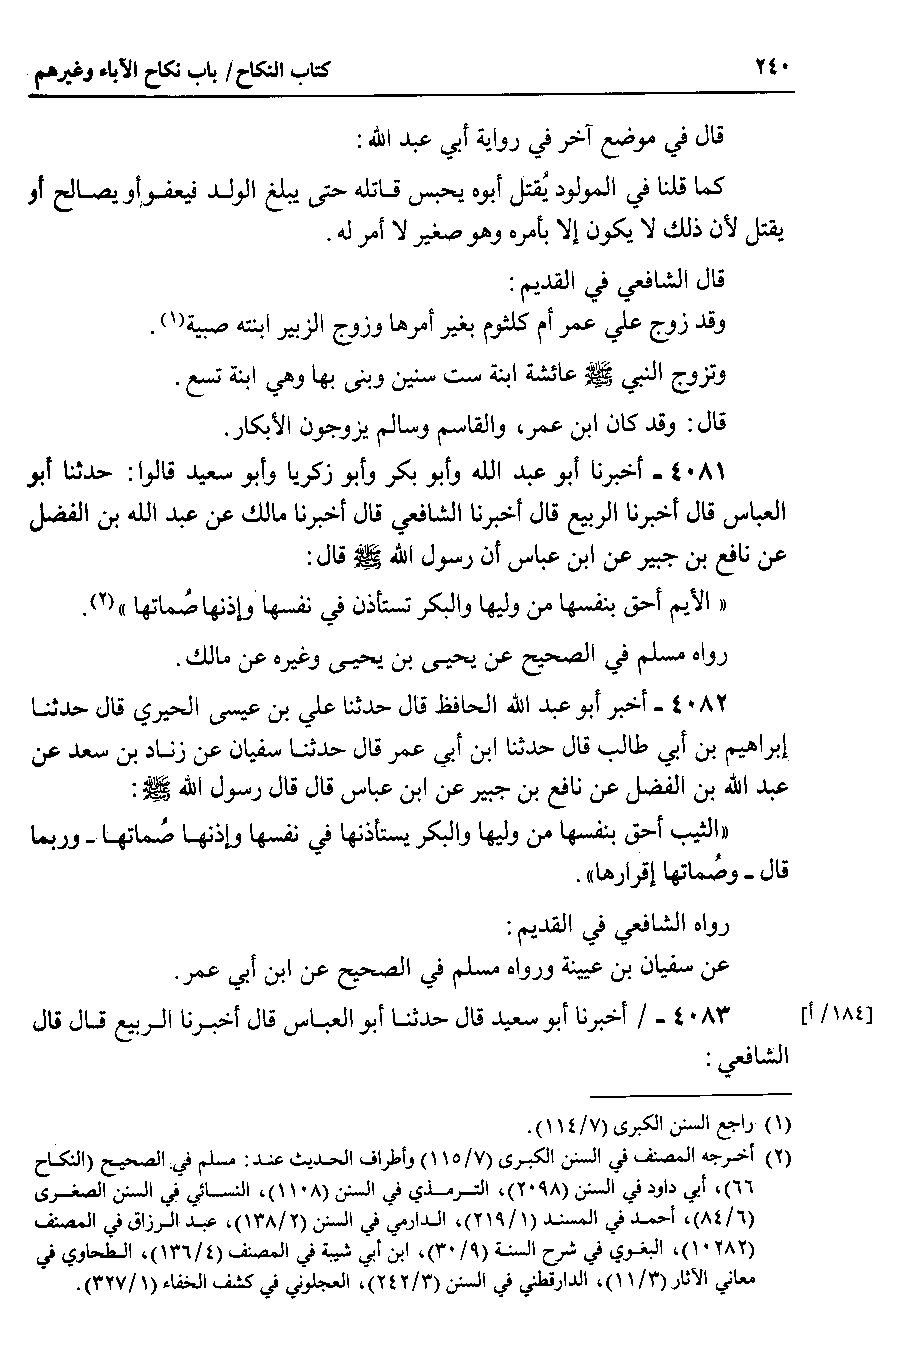 ٢٤٠ كتاب النكاح/ باب نكاح الآباء وغيرهم
قال في موضع آخر في رواية أبي عبد الله :
كما قلنا في المولود يُقتل أبوه يحبس قاتله حتى يبلغ الولد فيعفو أو يصالح أو
يقتل لأن ذلك لا يكون إلا بأمره وهو صغير لا أمر له .
قال الشافعي في القديم :
وقد زوج علي عمر أم كلثوم بغير أمرها وزوج الزبير ابنته صبية(١) .
وتزوج النبي ﷺ عائشة ابنة ست سنين وبنى بها وهي ابنة تسع .
قال : وقد كان ابن عمر، والقاسم وسالم يزوجون الأبكار .
٤٠٨١ - أخبرنا أبو عبد الله وأبو بكر وأبو زكريا وأبو سعيد قالوا : حدثنا أبو
العباس قال أخبرنا الربيع قال أخبرنا الشافعي قال أخبرنا مالك عن عبد الله بن الفضل
عن نافع بن جبير عن ابن عباس أن رسول الله ﷺ قال :
« الأيم أحق بنفسها من وليها والبكر تستأذن في نفسها وإذنها صُماتها »(٢) .
رواه مسلم في الصحيح عن يحيى بن يحيى وغيره عن مالك .
٤٠٨٢ - أخبر أبو عبد الله الحافظ قال حدثنا علي بن عيسى الحيري قال حدثنا
إبراهيم بن أبي طالب قال حدثنا ابن أبي عمر قال حدثنا سفيان عن زناد بن سعد عن
عبد الله بن الفضل عن نافع بن جبير عن ابن عباس قال قال رسول الله ﷺ :
«الثيب أحق بنفسها من وليها والبكر يستأذنها في نفسها وإذنها صُماتها - وربما
قال - وصُماتها إقرارها» .
رواه الشافعي في القديم :
عن سفيان بن عيينة ورواه مسلم في الصحيح عن ابن أبي عمر .
[١٨٤/ أ] ٤٠٨٣ - / أخبرنا أبو سعيد قال حدثنا أبو العباس قال أخبرنا الربيع قال قال
الشافعي :
(١) راجع السنن الكبرى (١١٤/٧) .
(٢) أخرجه المصنف في السنن الكبرى (١١٥/٧) وأطراف الحديث عند : مسلم في الصحيح (النكاح
٦٦)، أبي داود في السنن (٢٠٩٨)، الترمذي في السنن (١١٠٨)، النسائي في السنن الصغرى
(٨٤/٦)، أحمد في المسند (٢١٩/١)، الدارمي في السنن (١٣٨/٢)، عبد الرزاق في المصنف
(١٠٢٨٢)، البغوي في شرح السنة (٣٠/٩)، ابن أبي شيبة في المصنف (١٣٦/٤)، الطحاوي في
معاني الآثار (١١/٣)، الدارقطني في السنن (٢٤٢/٣)، العجلوني في كشف الخفاء (٣٢٧/١) .